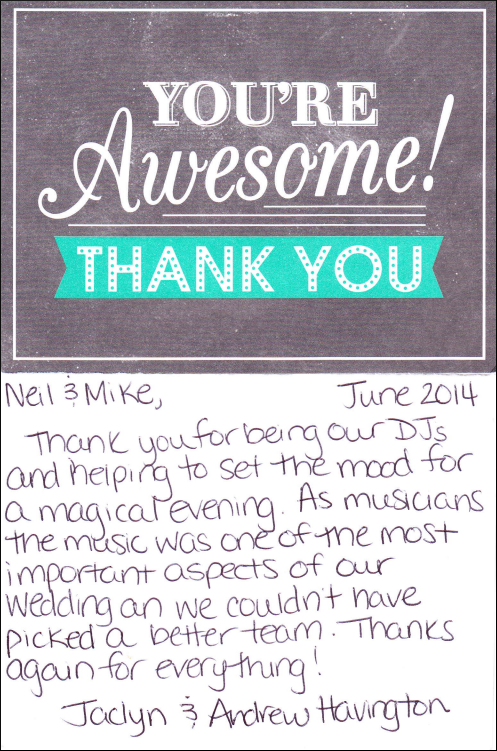 YOU'RE
Awesome!
THANK YOU
Neil & Mike, June 2014
Thank you for being our DJs
and helping to set the mood for
a magical evening. As musicians
the music was one of the most
important aspects of our
wedding an we couldn't have
picked a better team. Thanks
again for everything!
Jaclyn & Andrew Havington